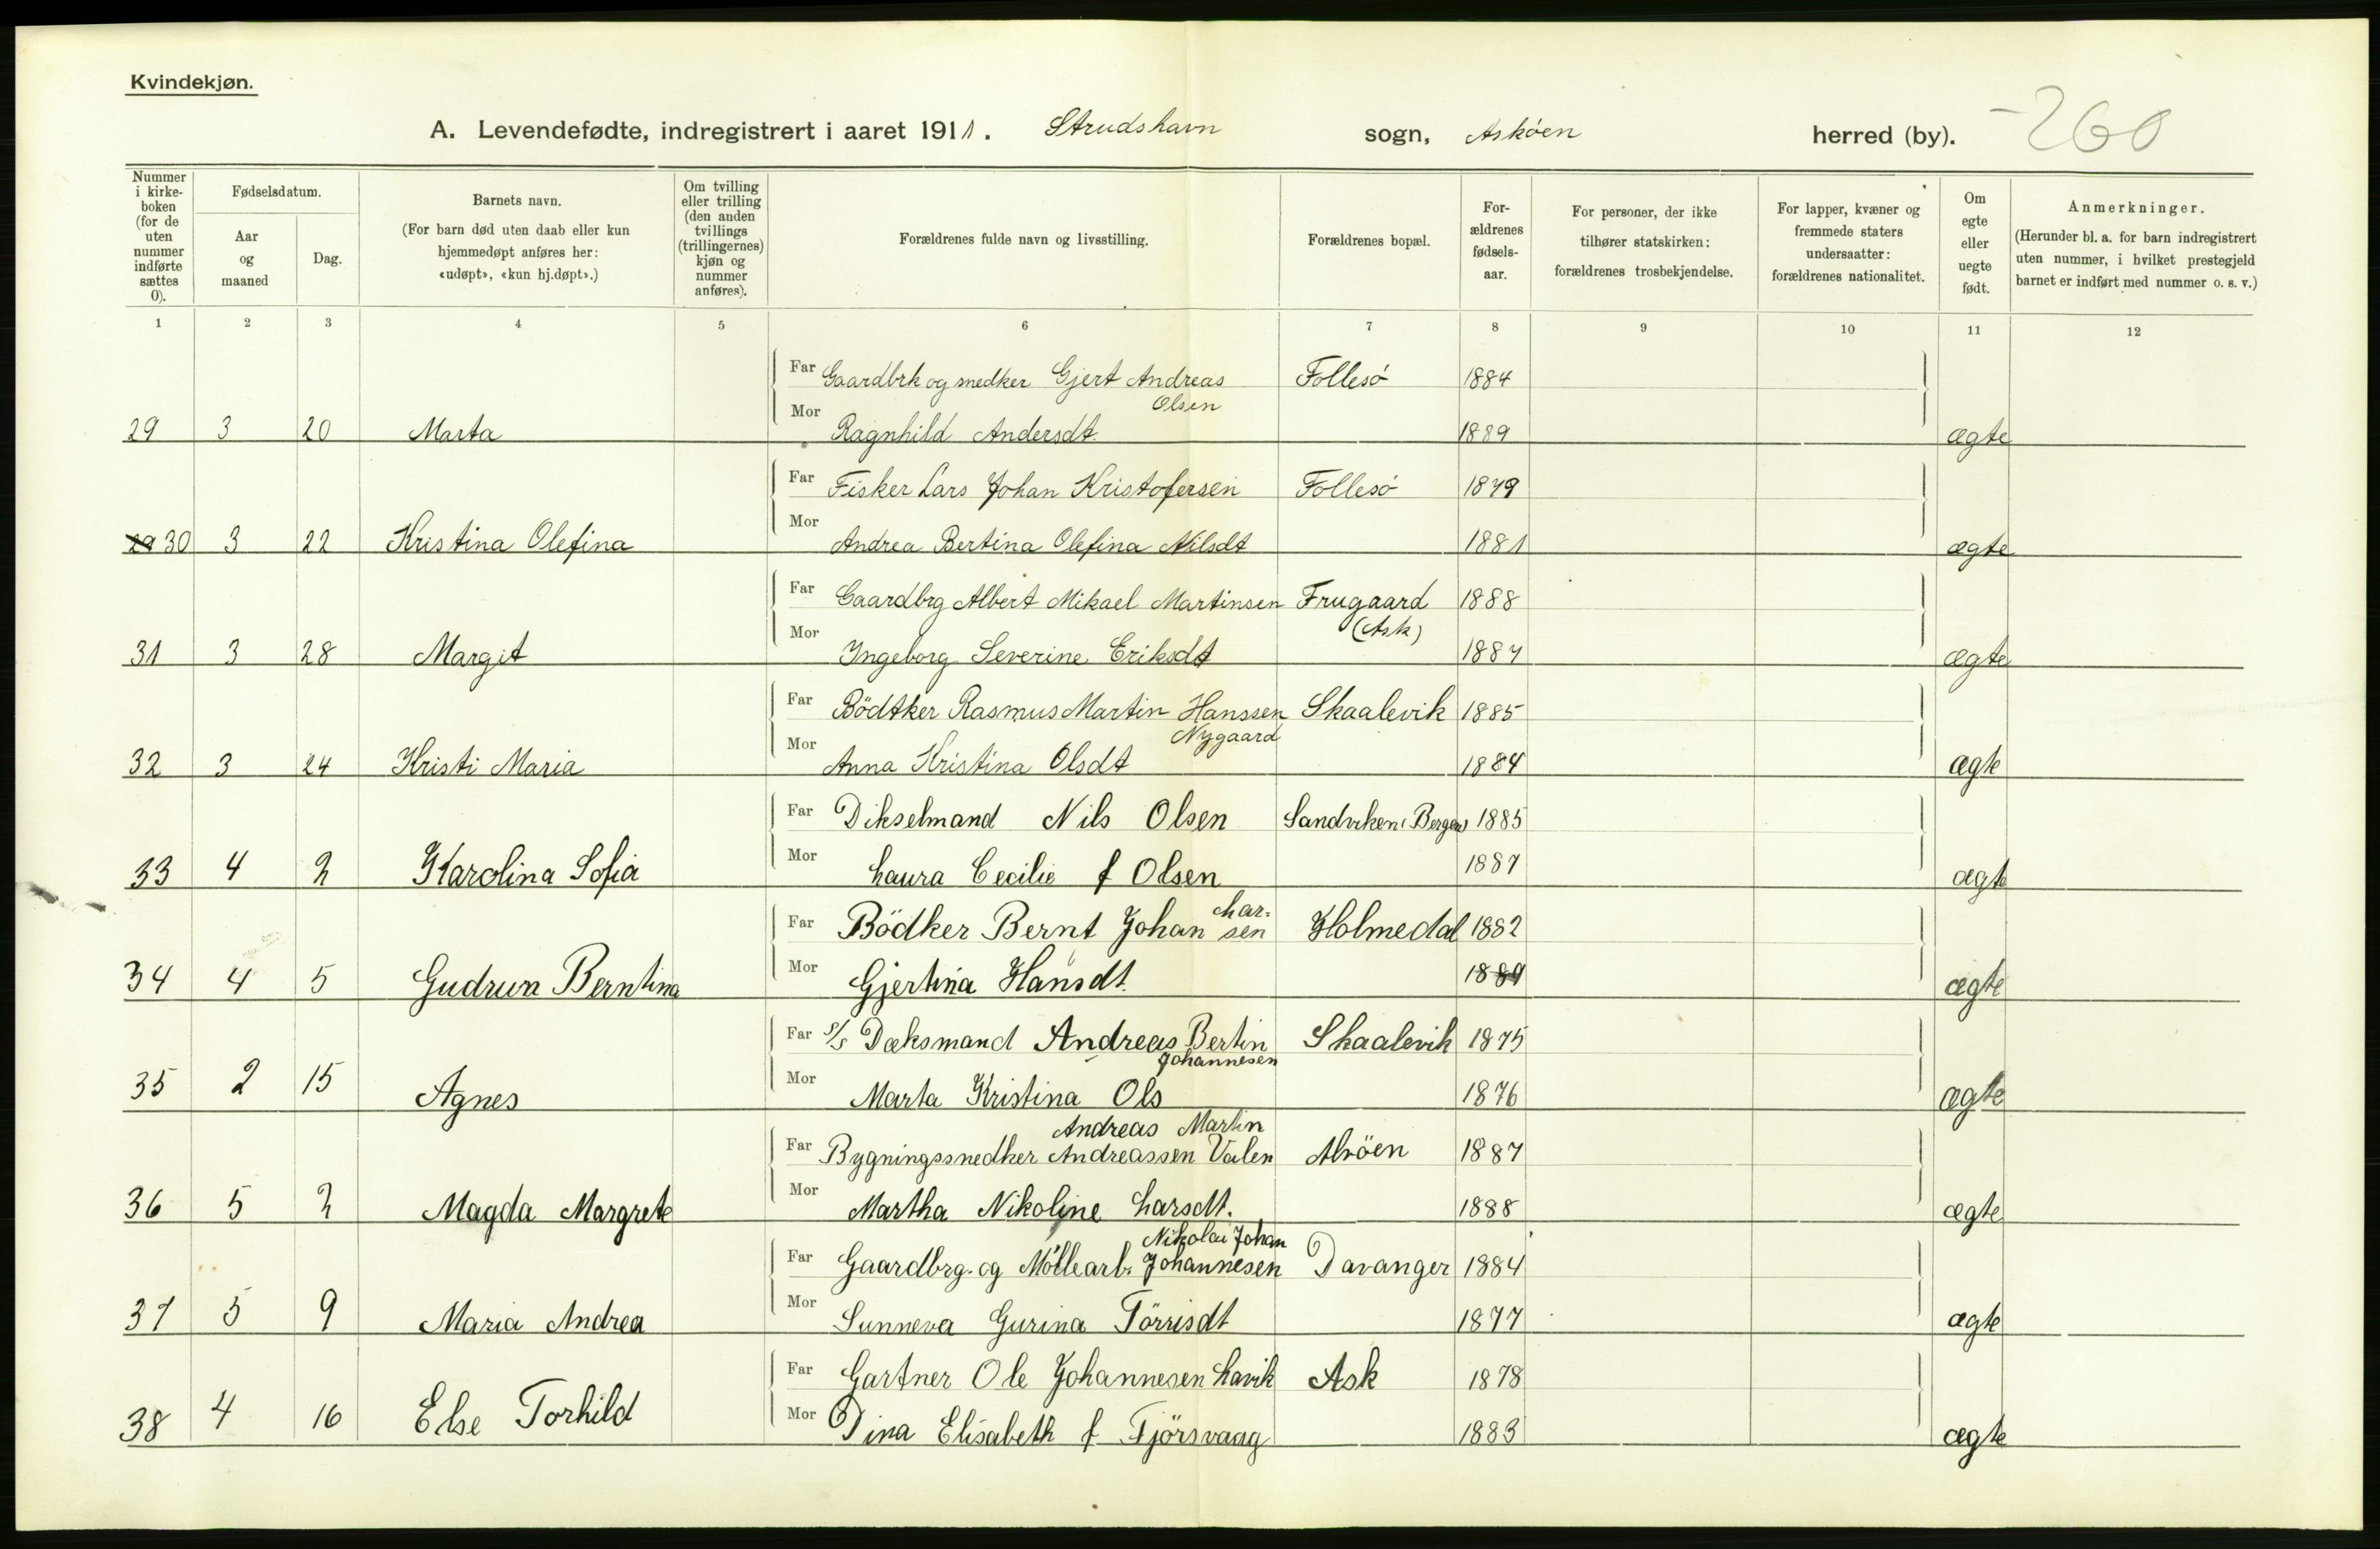 Kvindekjøn.
A. Levendefødte, indregistrert i aaret 1911. Strudshavn sogn, Askøen herred (by). 260
Nummer i kirkeboken (for de uten nummer indførte sættes 0).
Fødselsdatum.
Aar og maaned
Dag.
Barnets navn.
(For barn død uten daab eller kun hjemmedøpt anføres her: «udøpt», «kun hj.døpt».)
Om tvilling eller trilling (den anden tvillings (trillingernes) kjøn og nummer anføres).
Forældrenes fulde navn og livsstilling.
Forældrenes bopæl.
For-ældrenes fødsels-aar.
For personer, der ikke tilhører statskirken: forældrenes trosbekjendelse.
For lapper, kvæner og fremmede staters undersaatter: forældrenes nationalitet.
Om egte eller uegte født.
Anmerkninger.
(Herunder bl. a. for barn indregistrert uten nummer, i hvilket prestegjeld barnet er indført med nummer o. s. v.)
1 2 3 4 5 6 7 8 9 10 11 12
Far Gaardbrk og snedker Gjert Andreas Follesö 1884
Olsen
29 3 20 Marta Mor Ragnhild Andersdt. 1889 ægte
Far Fisker Lars Johan Kristofersen Follesö 1879
29 30 3 22 Kristina Olefina Mor Andrea Bertina Olefina Nilsdt 1881 ægte
Far Gaardbrg Albert Mikael Martinsen Frugaard 1888
(Ask)
31 3 28 Margit Mor Ingeborg Severine Eriksdt 1887 ægte
Far Bödtker Rasmus Martin Hanssen Skaalevik 1885
Nygaard
32 3 24 Kristi Maria Mor Anna Kristina Olsdt 1884 ægte
Far Dikselmand Nils Olsen Sandviken (Bergen) 1885
33 4 2 Karolina Sofia Mor Laura Cecilie f Olsen 1887 ægte
Lar-
Far Bödker Bernt Johan sen Holmedal 1882
34 4 5 Gudrun Berntina Mor Gjertina Hansdt. 1889 ægte
Far s/s Dæksmand Andreas Bertin Skaalevik 1875
Johannesen
35 2 15 Agnes Mor Marta Kristina Ols 1876 ægte
Andreas Martin
Far Bygningssnedker Andreassen Valen Alvöen 1887
36 5 2 Magda Margrete Mor Martha Nikoline Larsdt. 1888 ægte
Nikolai Johan
Far Gaardbrg. og Möllearb. Johannesen Davanger 1884
37 5 9 Maria Andrea Mor Sunneva Gurina Törrisdt 1877 ægte
Far Gartner Ole Johannesen Lavik Ask 1878
38 4 16 Else Torhild Mor Dina Elisabeth f Fjörsvaag 1883 ægte